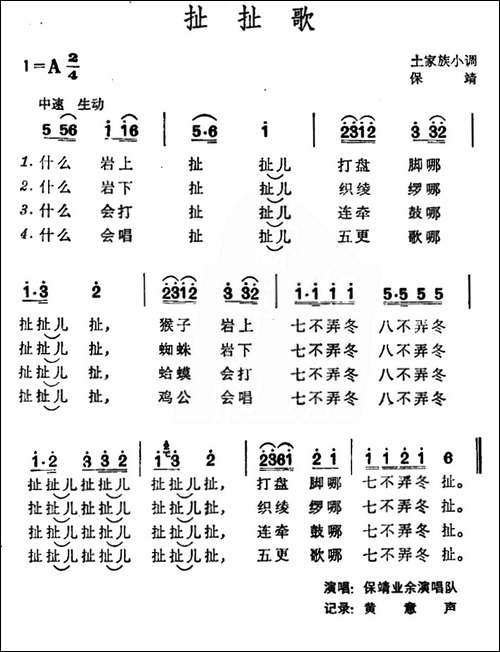 扯扯歌
1=A 2/4
土家族小调
保靖
中速 生动
5 56 i i6 5·6 i 2312 3 32
1.什么 岩上 扯 扯儿 打盘 脚哪
2.什么 岩下 扯 扯儿 织绫 锣哪
3.什么 会打 扯 扯儿 连牵 鼓哪
4.什么 会唱 扯 扯儿 五更 歌哪
i·3 2 2312 3 32 i·i i i 5·5 5 5
扯扯儿 扯, 猴子 岩上 七不弄冬 八不弄冬
扯扯儿 扯, 蜘蛛 岩下 七不弄冬 八不弄冬
扯扯儿 扯, 蛤蟆 会打 七不弄冬 八不弄冬
扯扯儿 扯, 鸡公 会唱 七不弄冬 八不弄冬
i·2 3 3 2 i 3 2 2361 2 i i i 2 i 6
扯扯儿扯扯儿 扯扯儿扯, 打盘 脚哪 七不弄冬 扯。
扯扯儿扯扯儿 扯扯儿扯, 织绫 锣哪 七不弄冬 扯。
扯扯儿扯扯儿 扯扯儿扯, 连牵 鼓哪 七不弄冬 扯。
扯扯儿扯扯儿 扯扯儿扯, 五更 歌哪 七不弄冬 扯。
演唱：保靖业余演唱队
记录：黄意声